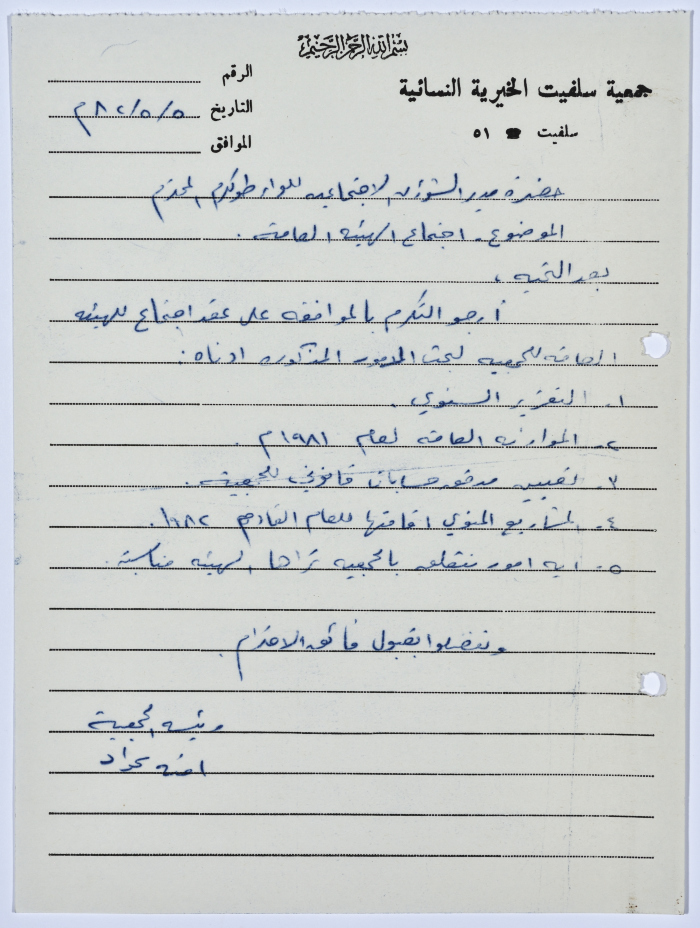 بسم الله الرحمن الرحيم
جمعية سلفيت الخيرية النسائية
سلفيت ☎ ٥١
الرقم
التاريخ ٥/٥/٨٢م
الموافق
حضرة مدير الشؤون الاجتماعيه للواء طولكرم المحترم
الموضوع - اجتماع الهيئه العامة .
بعد التحيه ،
أرجو التكرم بالموافقه على عقد اجتماع للهيئه
العامه للجمعيه لبحث الامور المذكوره ادناه :
١- التقرير السنوي .
٢- الموازنه العامه لعام ١٩٨١م .
٣- تعيين مدقق حسابات قانوني للجمعية .
٤- المشاريع المنوي اقامتها للعام القادم ١٩٨٢ .
٥- ايه امور تتعلق بالجمعيه تراها الهيئه مناسبة .
وتفضلوا بقبول فائق الاحترام
رئيسه الجمعية
امنه